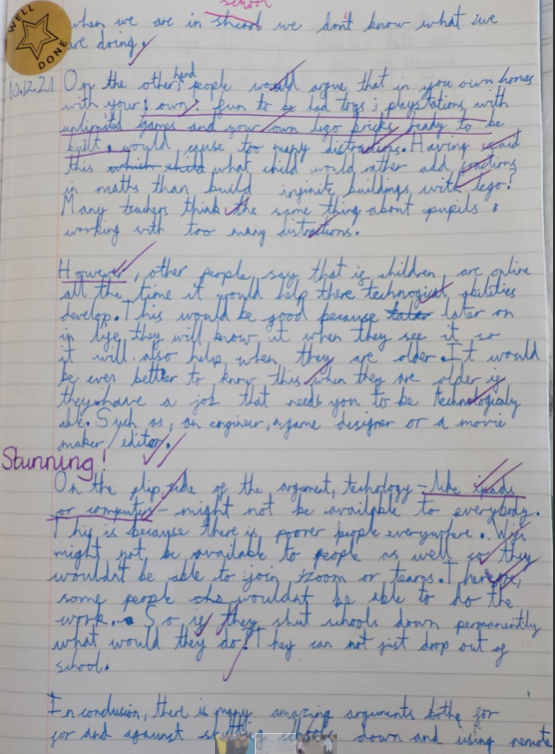 WELL DONE
school
when we are in shcool we don't know what we
we doing.
10.12.21
On the other hand people would argue that in you own homes
with your own fun to be had toys; playstations, with
unlimited games and your own lego bricks ready to be
built, would cause too many distractions. Having said
this which child what child would rather add fractions
in maths than build infinite buildings with lego?
Many teachers think the same thing about pupils
working with too many distrations.
However, other people say that if children are online
all the time it would help there technogical abilities
develop. This would be good because later later on
in life they will know it when they see it so
it will also help when they are older. It would
be even better to know this when they are older if
they have a job that needs you to be technologicaly
able. Such as, an engineer, a game designer or a movie
maker / editor.
Stunning!
On the flip side of the argument, techology - like ipads
or computers - might not be available to everybody.
This is because there is poorer people everywhere. Wifi
might not be available to people as well so they
wouldn't be able to join zoom or teams. Therefore,
some people wouldnt be able to do the
work. So if they shut schools down permanently
what would they do? They can not just drop out of
school.
In conclusion, there is many amazing arguments bothe for
for and against down and using remote